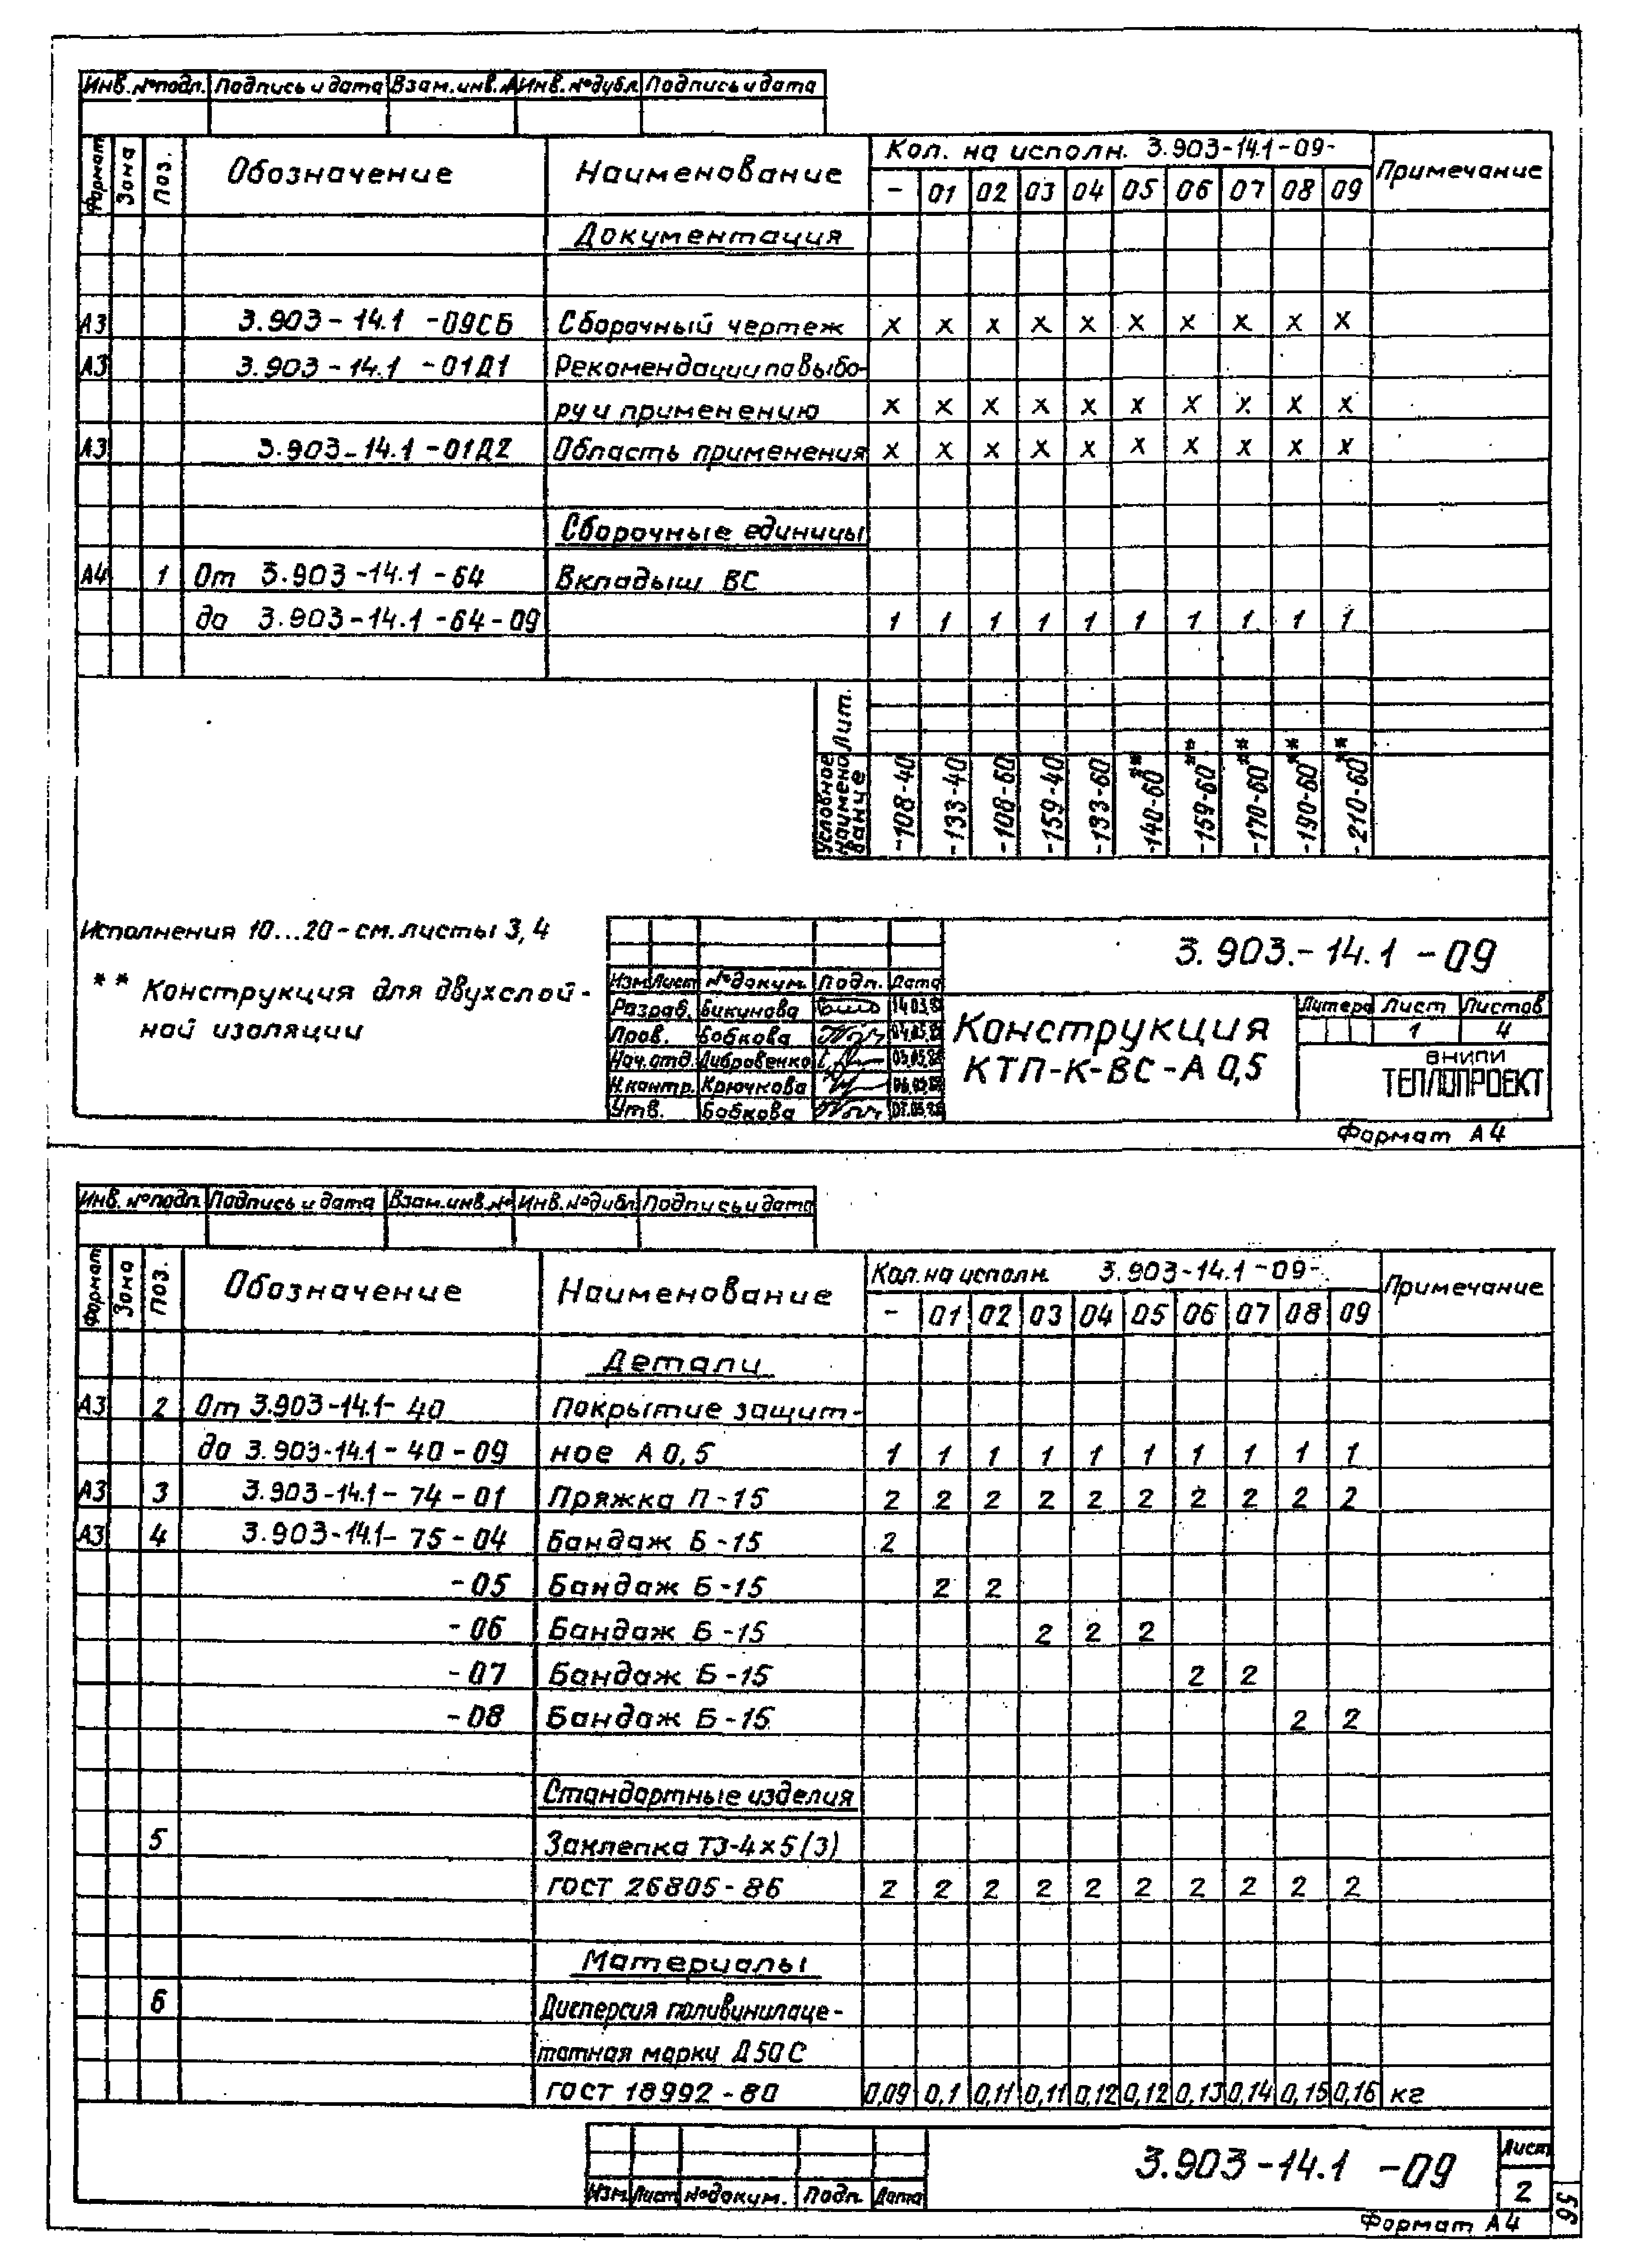 Инв. № подл. Подпись и дата Взам. инв. № Инв. № дубл. Подпись и дата
Формат Зона Поз. Обозначение Наименование Кол. на исполн. 3.903-14.1-09- Примечание
- 01 02 03 04 05 06 07 08 09
Документация
А3 3.903-14.1-09СБ Сборочный чертеж х х х х х х х х х х
А3 3.903-14.1-01Д1 Рекомендации по выбо-
ру и применению х х х х х х х х х х
А3 3.903-14.1-01Д2 Область применения х х х х х х х х х х
Сборочные единицы
А4 1 От 3.903-14.1-64 Вкладыш ВС
до 3.903-14.1-64-09 1 1 1 1 1 1 1 1 1 1
Лит.
Условное наименование -108-40 -133-40 -108-60 -159-40 -133-60 -140-60** -159-60** -170-60** -190-60** -210-60**
Исполнения 10...20 - см. листы 3, 4
** Конструкция для двухслой-
ной изоляции
3.903.-14.1-09
Изм Лист № докум. Подп. Дата
Разраб. Бикинова
Пров. Бобкова
Нач. отд. Либровенко
Н.контр. Крючкова
Утв. Бобкова
Конструкция
КТП-К-ВС-А 0,5
Литера Лист Листов
1 4
ВНИПИ
ТЕПЛОПРОЕКТ
Формат А4
Инв. № подл. Подпись и дата Взам. инв. № Инв. № дубл. Подпись и дата
Формат Зона Поз. Обозначение Наименование Кол. на исполн. 3.903-14.1-09- Примечание
- 01 02 03 04 05 06 07 08 09
Детали
А3 2 От 3.903-14.1-40 Покрытие защит-
до 3.903-14.1-40-09 ное А 0,5 1 1 1 1 1 1 1 1 1 1
А3 3 3.903-14.1-74-01 Пряжка П-15 2 2 2 2 2 2 2 2 2 2
А3 4 3.903-14.1-75-04 Бандаж Б-15 2
-05 Бандаж Б-15 2 2
-06 Бандаж Б-15 2 2 2
-07 Бандаж Б-15 2 2
-08 Бандаж Б-15 2 2
Стандартные изделия
5 Заклепка ТЗ-4х5(3)
ГОСТ 26805-86 2 2 2 2 2 2 2 2 2 2
Материалы
6 Дисперсия поливинилаце-
татная марки Д 50 С
ГОСТ 18992-80 0,09 0,1 0,11 0,11 0,12 0,12 0,13 0,14 0,15 0,16 кг
3.903-14.1-09
Лист
2
Изм Лист № докум. Подп. Дата
Формат А4
56